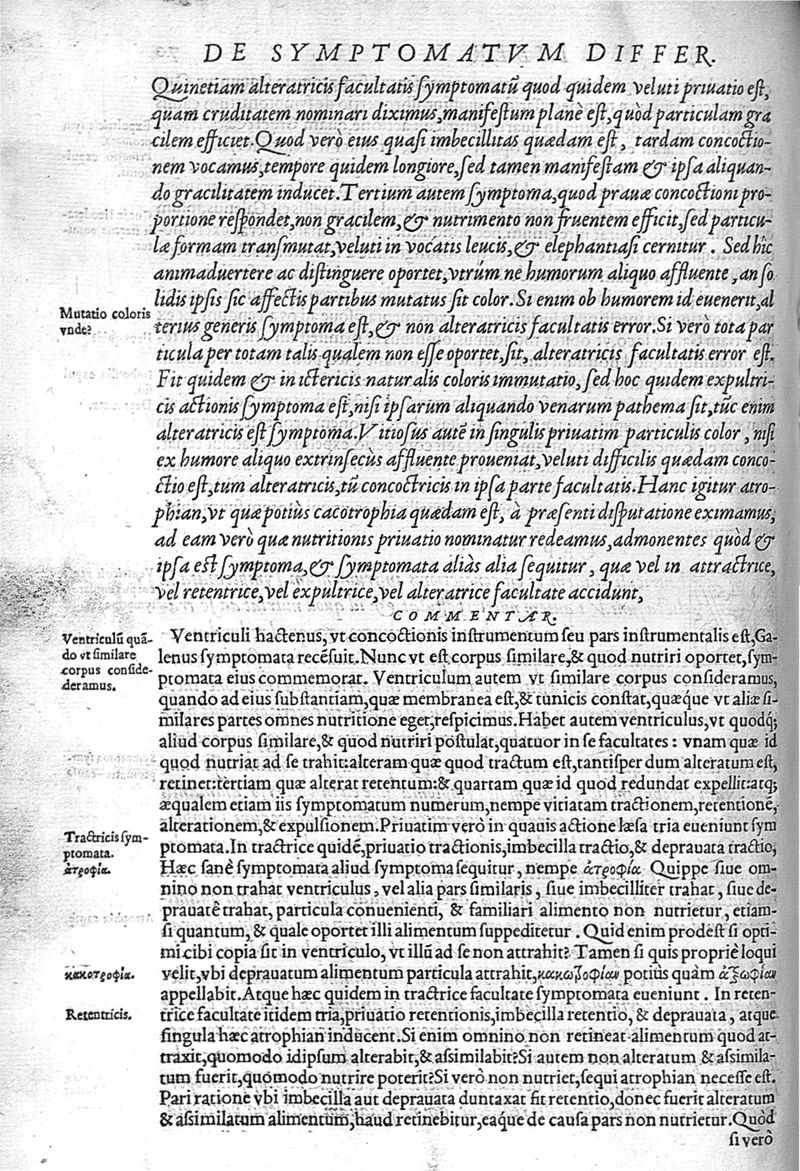 DE SYMPTOMATVM DIFFER.
Quinetiam alteratricis facultatis symptomatũ quod quidem veluti priuatio est,
quam cruditatem nominari diximus, manifestum planè est, quòd particulam gra
cilem efficiet. Quod verò eius quasi imbecillitas quædam est, tardam concoctio-
nem vocamus, tempore quidem longiore, sed tamen manifestam & ipsa aliquan-
do gracilitatem inducet. Tertium autem symptoma, quod prauæ concoctioni pro-
portione respondet, non gracilem, & nutrimento non fruentem efficit, sed particu-
læ formam transmutat, veluti in vocatis leucis, & elephantiasi cernitur. Sed hîc
animaduertere ac distinguere oportet, vtrúm ne humorum aliquo affluente, an so
lidis ipsis sic affectis partibus mutatus sit color. Si enim ob humorem id euenerit, al
Mutatio coloris
vnde?
terius generis symptoma est, & non alteratricis facultatis error. Si verò tota par
ticula per totam talis qualem non esse oportet, sit, alteratricis facultatis error est.
Fit quidem & in ictericis naturalis coloris immutatio, sed hoc quidem expultri-
cis actionis symptoma est, nisi ipsarum aliquando venarum pathema sit, tũc enim
alteratricis est symptoma. Vitiosus autẽ in singulis priuatim particulis color, nisi
ex humore aliquo extrinsecùs affluente proueniat, veluti difficilis quædam conco-
ctio est, tum alteratricis, tũ concoctricis in ipsa parte facultatis. Hanc igitur atro-
phian, vt quæ potiùs cacotrophia quædam est, à præsenti disputatione eximamus,
ad eam verò quæ nutritionis priuatio nominatur redeamus, admonentes quòd &
ipsa est symptoma, & symptomata aliàs alia sequitur, quæ vel in attractrice,
vel retentrice, vel expultrice, vel alteratrice facultate accidunt,
COMMENTAR.
Ventriculũ quã-
do vt similare
corpus conside-
deramus.
Ventriculi hactenus, vt concoctionis instrumentum seu pars instrumentalis est, Ga-
lenus symptomata recẽsuit. Nunc vt est corpus similare, & quod nutriri oportet, sym-
ptomata eius commemorat. Ventriculum autem vt similare corpus consideramus,
quando ad eius substantiam, quæ membranea est, & tunicis constat, quæque vt aliæ si-
milares partes omnes nutritione eget, respicimus. Habet autem ventriculus, vt quodq;
aliud corpus similare, & quod nutriri postulat, quatuor in se facultates: vnam quæ id
quod nutriat ad se trahit: alteram quæ quod tractum est, tantisper dum alteratum est,
retinet: tertiam quæ alterat retentum: & quartam quæ id quod redundat expellit: atq;
æqualem etiam iis symptomatum numerum, nempe vitiatam tractionem, retentionẽ,
alterationem, & expulsionem. Priuatim verò in quauis actione læsa tria eueniunt sym
Tractricis sym-
ptomata.
ἀτροφία.
ptomata. In tractrice quidẽ, priuatio tractionis, imbecilla tractio, & deprauata tractio,
Hæc sanè symptomata aliud symptoma sequitur, nempe ἀτροφία. Quippe siue om-
nino non trahat ventriculus, vel alia pars similaris, siue imbecilliter trahat, siue de-
prauatè trahat, particula conuenienti, & familiari alimento non nutrietur, etiam-
si quantum, & quale oportet illi alimentum suppeditetur. Quid enim prodest si opti-
mi cibi copia sit in ventriculo, vt illũ ad se non attrahit? Tamen si quis propriè loqui
κακοτροφία.
velit, vbi deprauatum alimentum particula attrahit, κακοτροφίαν potiùs quàm ἀτροφίαν
appellabit. Atque hæc quidem in tractrice facultate symptomata eueniunt. In reten-
Retentricis.
trice facultate itidem tria, priuatio retentionis, imbecilla retentio, & deprauata, atque
singula hæc atrophian inducent. Si enim omnino non retineat alimentum quod at-
traxit, quomodo idipsum alterabit, & assimilabit? Si autem non alteratum & assimila-
tum fuerit, quomodo nutrire poterit? Si verò non nutriet, sequi atrophian necesse est.
Pari ratione vbi imbecilla aut deprauata duntaxat fit retentio, donec fuerit alteratum
& assimilatum alimentum, haud retinebitur, eaque de causa pars non nutrietur. Quòd
si verò